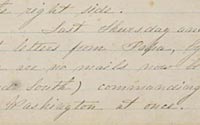 the right side.
Last Thursday
letters from Papa, by
are no mails now
South) commanding
Washington at once.